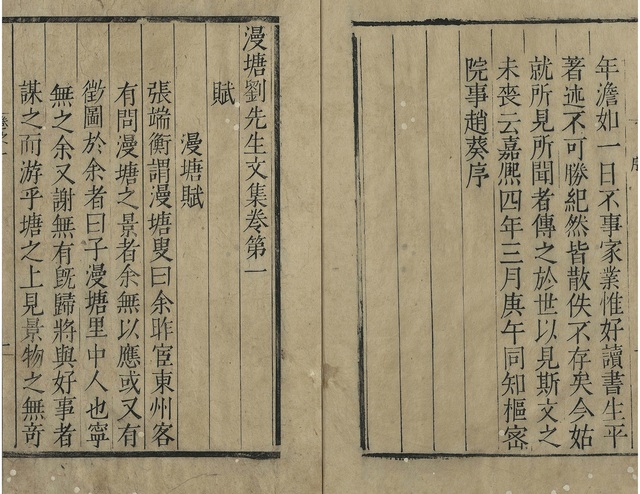 年澹如一日不事家業惟好讀書生平
著述不可勝紀然皆散佚不存矣今姑
就所見所聞者傳之於世以見斯文之
未喪云嘉熙四年三月庚午同知樞密
院事趙葵序
漫塘劉先生文集卷第一
賦
漫塘賦
張端衡謂漫塘叟曰余昨宦東州客
有問漫塘之景者余無以應或又有
徵圖於余者曰子漫塘里中人也寧
無之余又謝無有旣歸將與好事者
謀之而游乎塘之上見景物之無竒